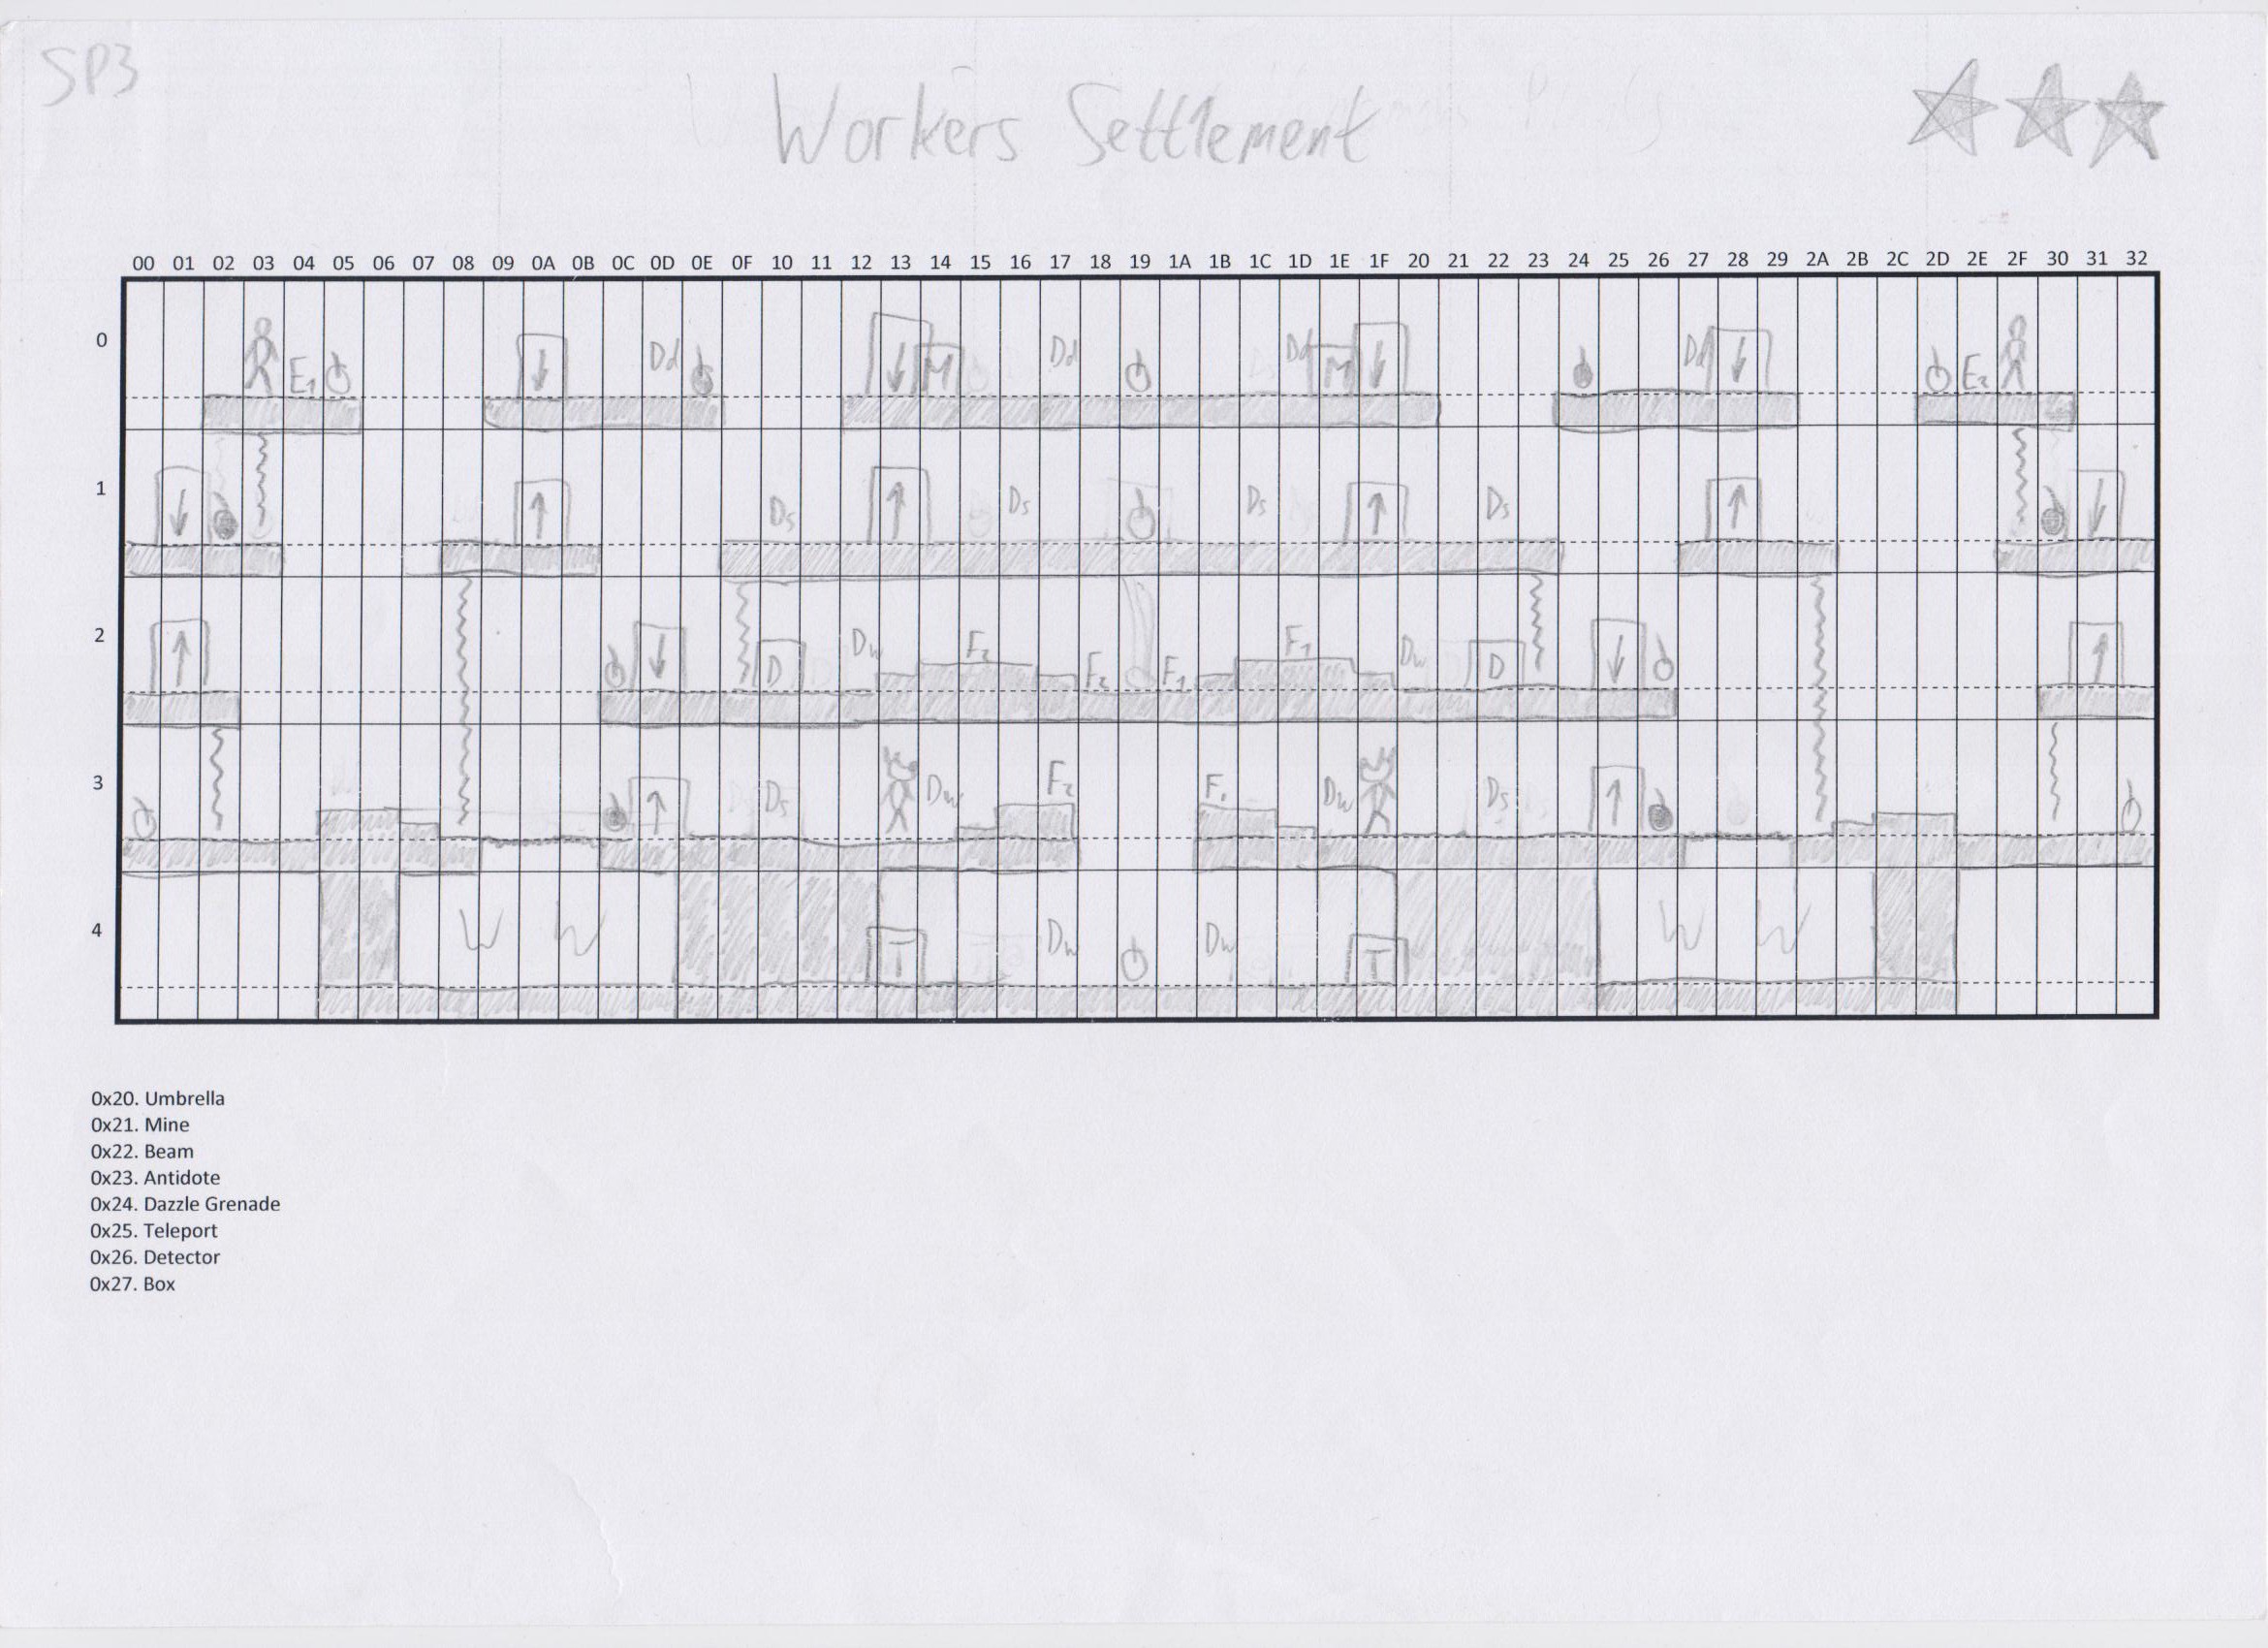 SP3
Workers Settlement
00 01 02 03 04 05 06 07 08 09 0A 0B 0C 0D 0E 0F 10 11 12 13 14 15 16 17 18 19 1A 1B 1C 1D 1E 1F 20 21 22 23 24 25 26 27 28 29 2A 2B 2C 2D 2E 2F 30 31 32
0 E1 ↓ Dd ↓ M Dd Dd M ↓ Dd ↓ E2
1 ↓ ↑ Ds ↑ Ds Ds ↑ Ds ↑ ↓
2 ↑ ↓ D Dw F2 F2 F1 F1 Dw D ↓ ↑
3 ↑ Ds Dw F2 F1 Dw Ds ↑
4 W W T Dw Dw T W W
0x20. Umbrella
0x21. Mine
0x22. Beam
0x23. Antidote
0x24. Dazzle Grenade
0x25. Teleport
0x26. Detector
0x27. Box